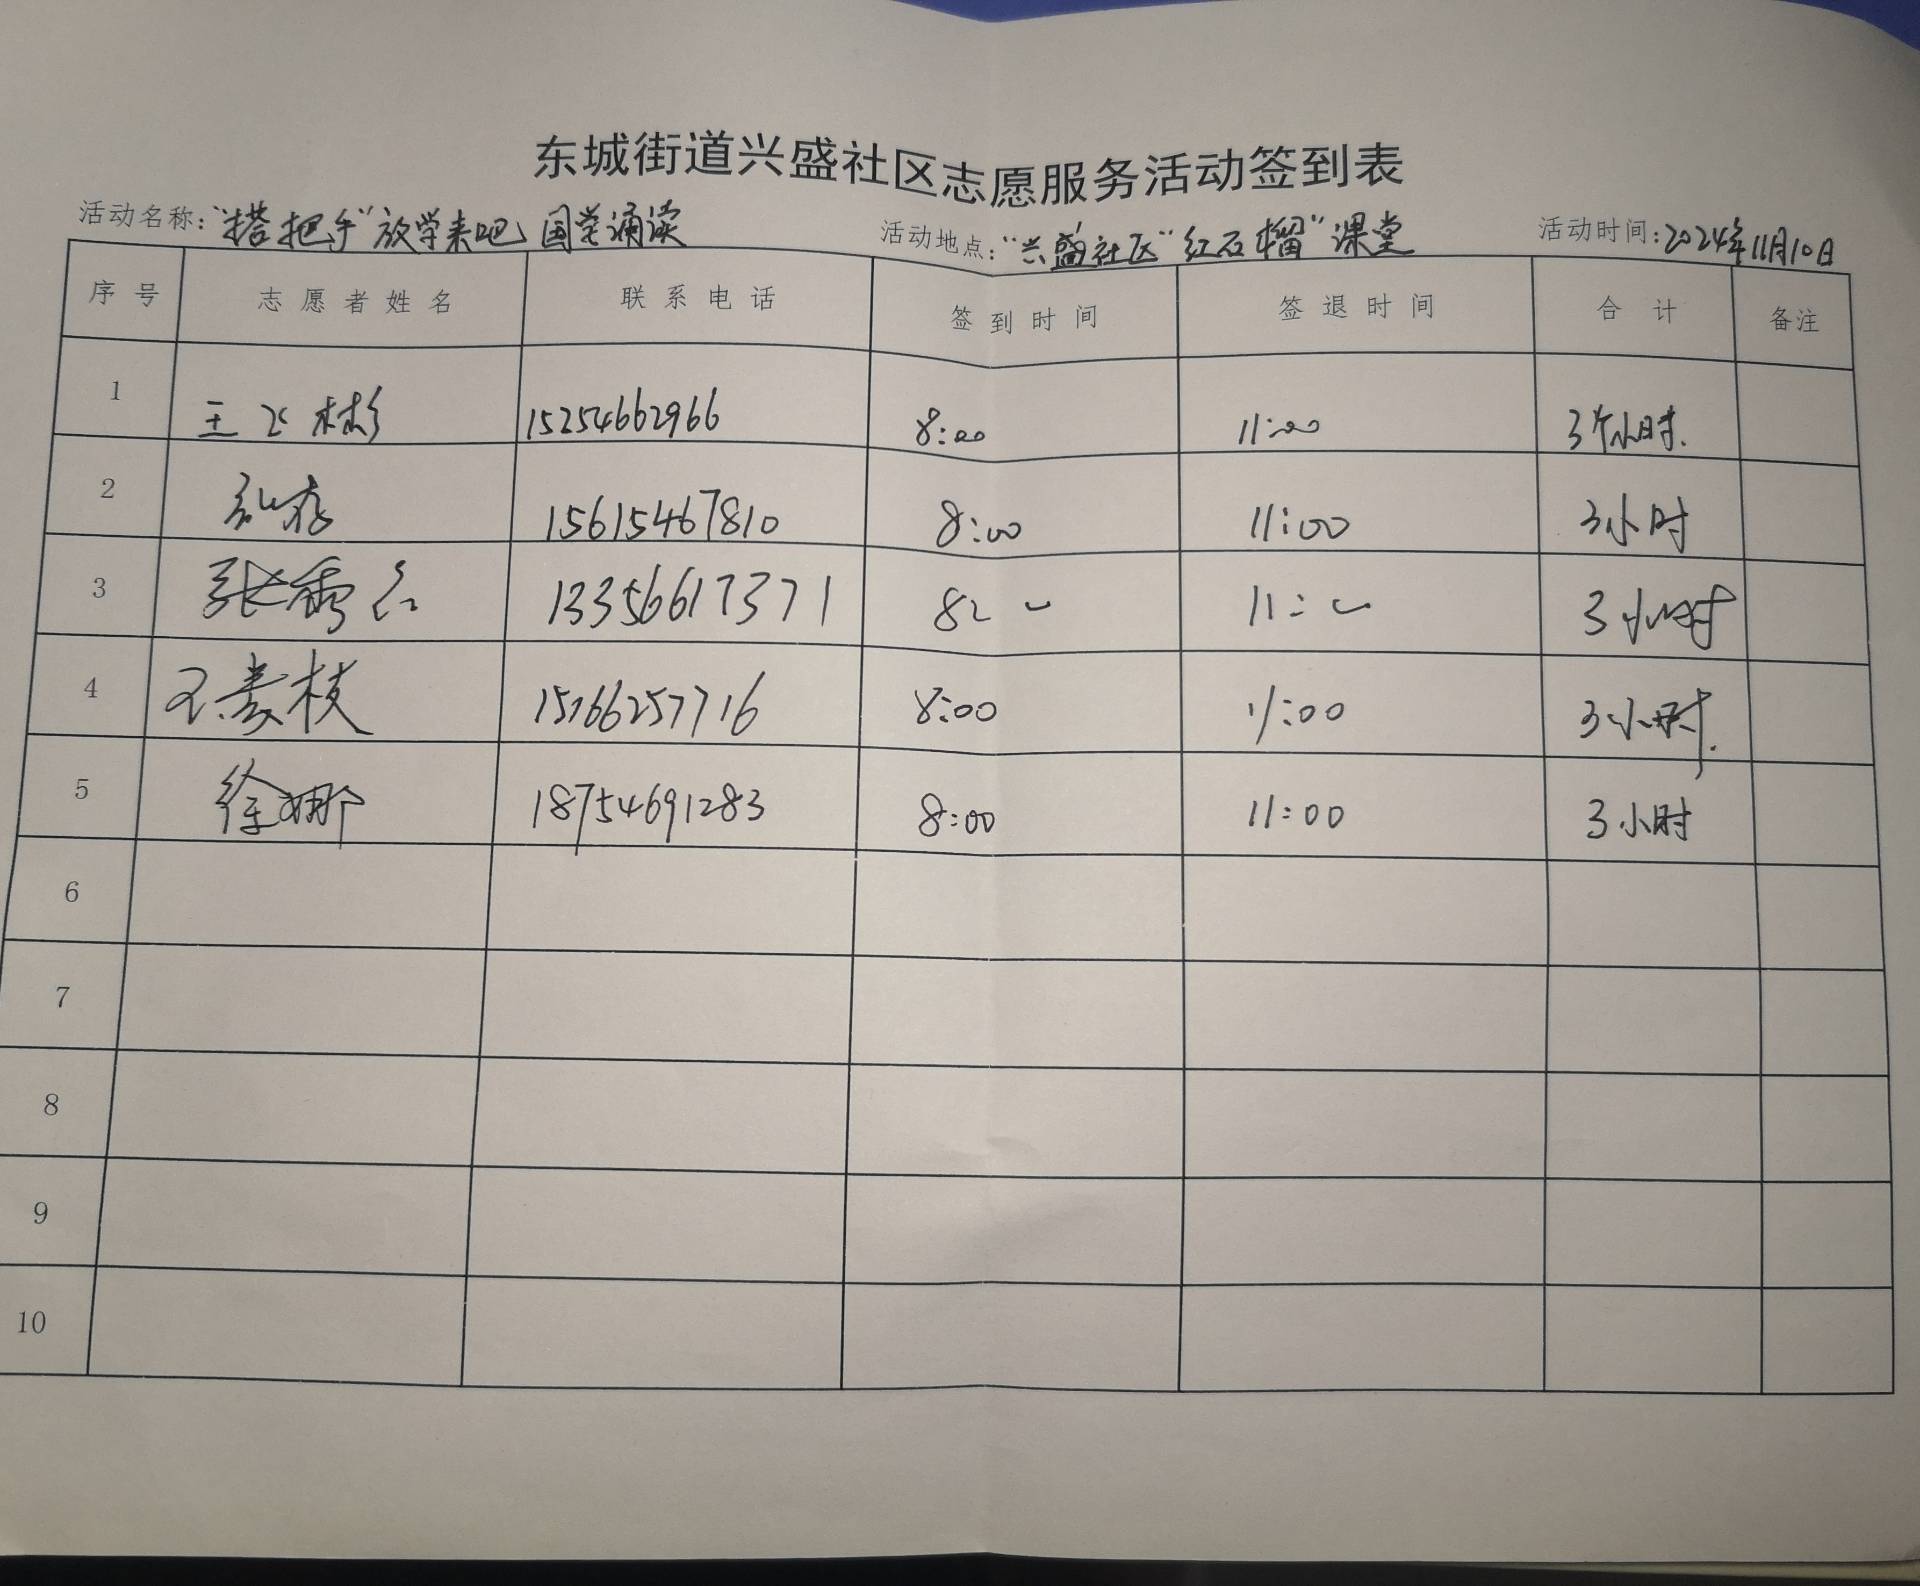 东城街道兴盛社区志愿服务活动签到表
活动名称:"搭把手"放学来吧 国学诵读 活动地点:"兴盛社区"红石榴"课堂 活动时间:2024年11月10日
序号 志愿者姓名 联系电话 签到时间 签退时间 合计 备注
1 王飞彬 15254662966 8:00 11:00 3个小时.
2 15615467810 8:00 11:00 3小时
3 张秀 13356617371 8: 11: 3小时
4 王秀枝 15166257716 8:00 11:00 3小时.
5 徐娜 18754691283 8:00 11:00 3小时
6
7
8
9
10